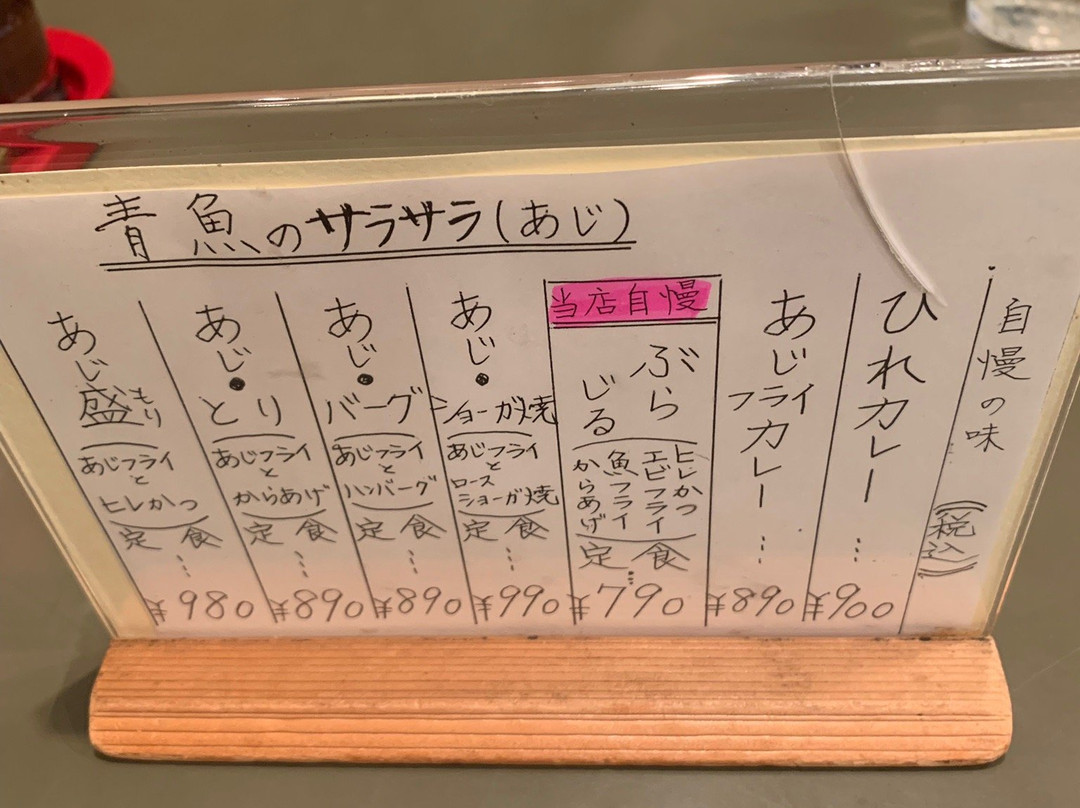 青魚のサラサラ(あじ)
自慢の味
(税込)
ひれカレー
¥900
あじフライカレー
¥890
当店自慢
ぶらじる
(ヒレかつ
エビフライ
魚フライ
からあげ)
定食
¥790
あじ・ショーガ焼
(あじフライ
と
ロース
ショーガ焼)
定食
¥990
あじ・バーグ
(あじフライ
と
ハンバーグ)
定食
¥890
あじ・とり
(あじフライ
と
からあげ)
定食
¥890
あじ盛もり
(あじフライ
と
ヒレかつ)
定食
¥980